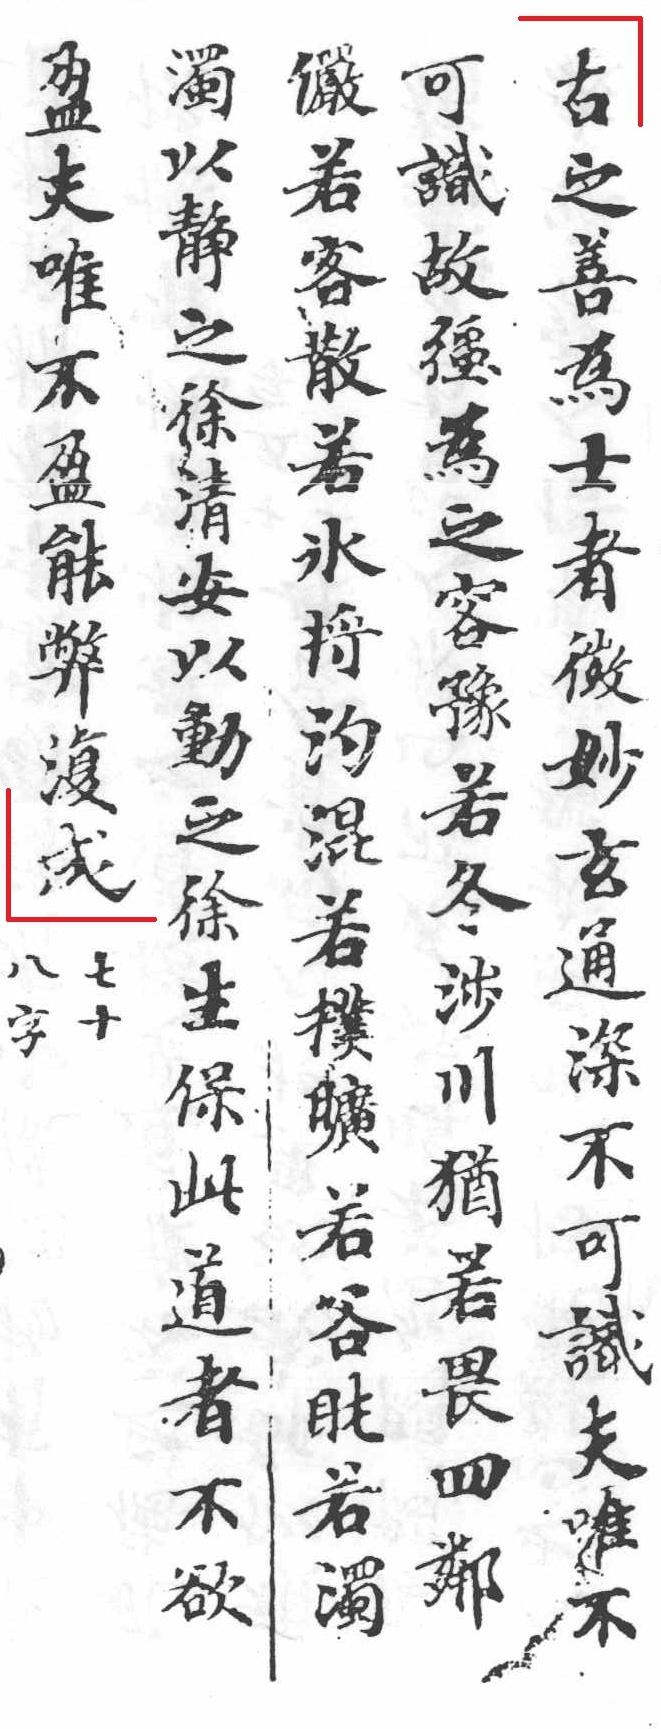 古之善為士者微妙玄通深不可識夫唯不
可識故彊為之容豫若冬涉川猶若畏四鄰
儼若客散若氷將汋混若樸曠若谷肫若濁
濁以靜之徐清安以動之徐生保此道者不欲
盈夫唯不盈能弊復成
七十
八字